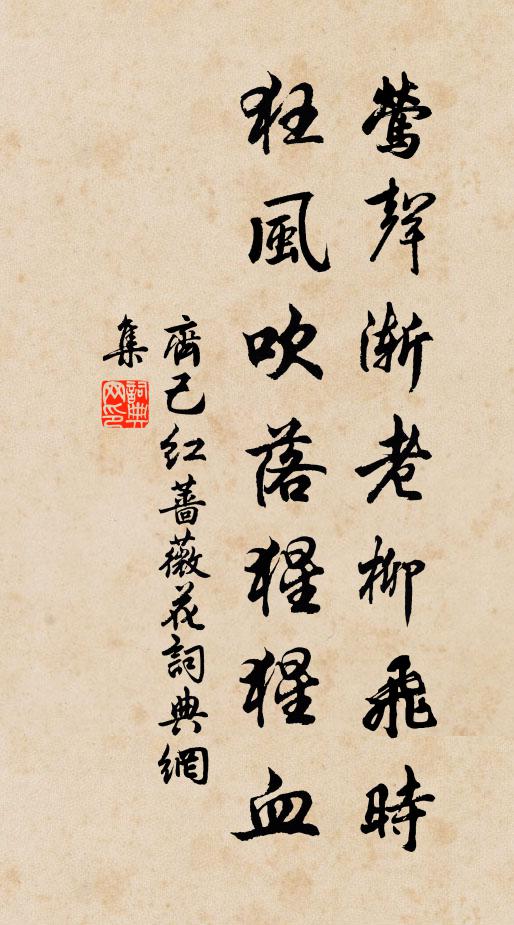 鶯聲漸老柳飛時
狂風吹落猩猩血
齊己紅薔薇花詞典網
集
詞典
网印